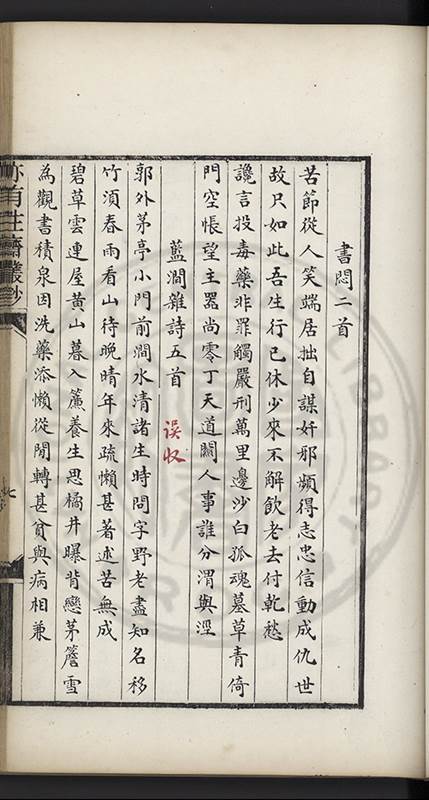 書悶二首
苦節從人笑端居拙自謀奸邪頻得志忠信動成仇世
故只如此吾生行已休少來不解飲老去付乾愁
讒言投毒藥非罪觸嚴刑萬里邊沙白孤魂墓草青倚
門空悵望主器尚零丁天道關人事誰分渭與涇
藍澗雜詩五首
誤收
郭外茅亭小門前澗水清諸生時問字野老盡知名移
竹須春雨看山待晚晴年來疏懶甚著述苦無成
碧草雲連屋黃山暮入簾養生思橘井曝背戀茅簷雪
為觀書積泉因洗藥添懶從閒轉甚貧與病相兼